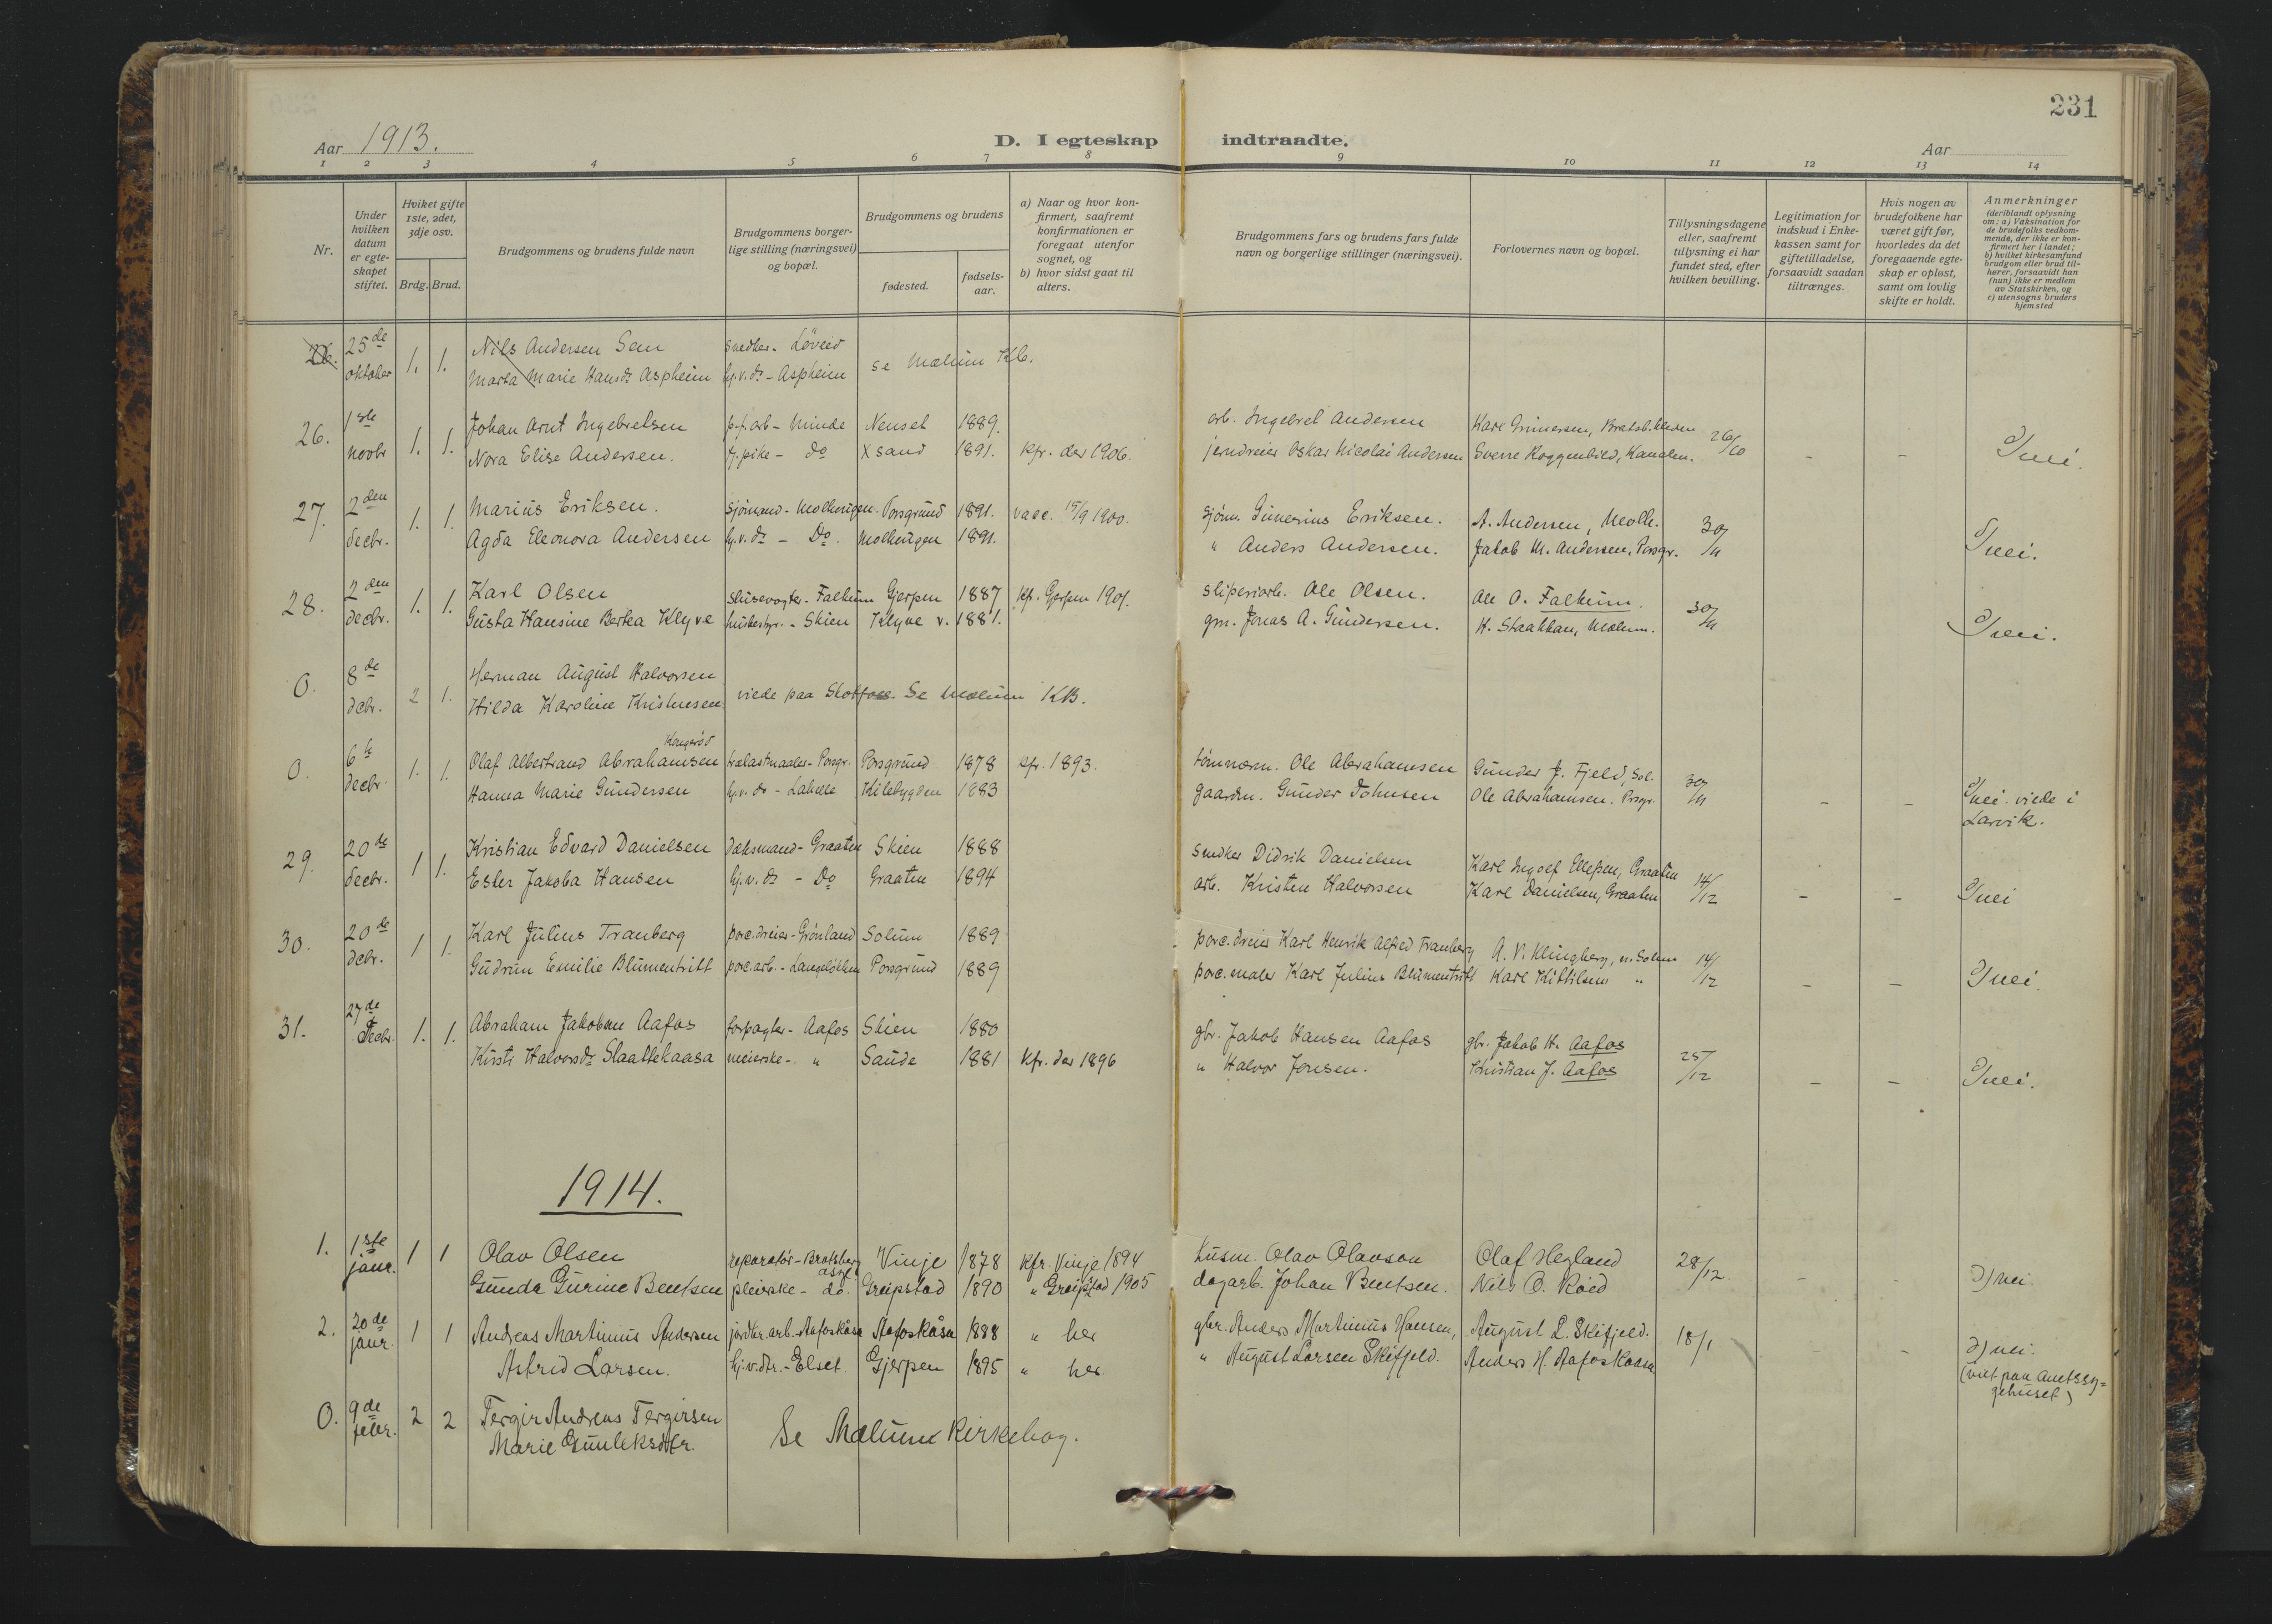 231
Aar 1913.
D. I egteskap indtraadte.
Aar
1 2 3 4 5 6 7 8 9 10 11 12 13 14
Nr.
Under hvilken datum er egteskapet stiftet.
Hviket gifte 1ste, 2det, 3dje osv.
Brdg. Brud.
Brudgommens og brudens fulde navn
Brudgommens borgerlige stilling (næringsvei) og bopæl.
Brudgommens og brudens
fødested.
fødselsaar.
a) Naar og hvor konfirmert, saafremt konfirmationen er foregaat utenfor sognet, og
b) hvor sidst gaat til alters.
Brudgommens fars og brudens fars fulde navn og borgerlige stillinger (næringsvei).
Forlovernes navn og bopæl.
Tillysningsdagene eller, saafremt tillysning ei har fundet sted, efter hvilken bevilling.
Legitimation for indskud i Enkekassen samt for giftetilladelse, forsaavidt saadan tiltrænges.
Hvis nogen av brudefolkene har været gift før, hvorledes da det foregaaende egteskap er opløst, samt om lovlig skifte er holdt.
Anmerkninger (deriblandt oplysning om: a) Vaksination for de brudefolks vedkommende, der ikke er konfirmert her i landet; b) hvilket kirkesamfund brudgom eller brud tilhører, forsaavidt han (hun) ikke er medlem av Statskirken, og c) utensogns bruders hjemsted
26. 25de oktober 1. 1. Nils Andersen Sem snedker - Løveid
Marta Marie Hansdr Aspheim hj.v.dr - Aspheim se Mælum Kb.
26. 1ste novbr 1. 1. Johan Arnt Ingebretsen p.f. arb - Minde Nenset 1889. arb. Ingebret Andersen Karl Gunnersen, Bratsb. kleven 26/10 - - d) nei.
Nora Elise Andersen. tj. pike - do X sand 1891. Kfr. der 1906. jerndreier Oskar Nicolai Andersen Sverre Roggenbied, Kanalen.
27. 2den decbr. 1. 1. Marius Eriksen. sjømand - Molhaugen. Porsgrund 1891. vacc. 15/9 1900. sjøm. Gunerius Eriksen. A. Andersen, Molh. 30/11 d) nei.
Agda Eleonora Andersen hj.v.dr - Do. Molhaugen 1891. " Anders Andersen. Jakob M. Andersen, Porsgr.
28. 2den decbr. 1. 1. Karl Olsen slusevogter - Falkum Gjerpen 1887 kf. Gjerpen 1901. sliperiarb. Ole Olsen. Ole O. Falkum. 30/11 d) nei.
Gusta Hansine Bertea Klyve husbestyr. - Skien Klyve v. 1881. gm. Jonas A. Gundersen. H. Staahkan, Mælum.
0. 8de dcbr. 2 1. Herman August Halvorsen
Hilda Karoline Kristensen viede paa Skotfoss. Se Mælum KB.
0. 6te decbr. 1. 1. Olaf Albertrand Abrahamsen Kongerød trælastmaaler - Porsgr. Porsgrund 1878 kfr. 1893. tømmerm. Ole Abrahamsen Gunder J. Fjeld, Sol. 30/11 - - d) nei. viede i Larvik.
Hanna Marie Gundersen hj.v.dr - Labelle Kilebygden 1883 gaardm. Gunder Johnsen Ole Abrahamsen. Prsgr.
29. 20de decbr. 1 1. Kristian Edvard Danielsen dæksmand - Graaten Skien 1888 snedker Didrik Danielsen Karl Ingolf Ellefsen, Graaten 14/12 - - d) nei
Ester Jakoba Hansen hj.v.dr - Do Graaten 1894 arb. Kristen Halvorsen Karl Danielsen, Graaten
30. 20de dcbr. 1 1. Karl Julius Tranberg porc. dreier - Grønland Solum 1889 porc. dreier Karl Henrik Alfred Tranberg A. V. Klingberg, n. Solum 14/12 - - d) nei.
Gudrun Emilie Blumentritt porc. arb. - Langeløkken Porsgrund 1889 porc. maler Karl Julius Blumentritt Karl Kittilsen "
31. 27de decbr. 1. 1. Abraham Jakobsen Aafos forpagter - Aafos Skien 1880 gbr. Jakob Hansen Aafos gbr. Jakob H. Aafos 25/12 - - d) nei.
Kirsti Halvorsdr Slaattekaasa meierske - " Saude 1881 Kfr. der 1896 " Halvor Jensen. Kristian J. Aafos
1914.
1. 1ste janr. 1 1 Olav Olsen reparatør - Bratsberg asyl Vinje 1878 Kfr. Vinje 1894 Husm. Olav Olavson Olaf Hegland 28/12. - - d) nei.
Gunda Gurine Bentsen pleierske - do. Greipstad 1890 " Greipstad 1905 dagarb. Johan Bentsen. Nils O. Røed
2. 20de janr. 1 1 Andreas Martinius Andersen jordbr. arb. - Aafoskåsa Aafoskåsa 1888 " her gbr. Anders Martinius Hansen, August L. Skifjeld. 18/1 - - d) nei.
Astrid Larsen. hj.v.dtr. - Elset. Gjerpen 1895 " her " August Larsen Skifjeld. Anders H. Aafoskaasa (viet paa Amtssygehuset)
0. 9de febr. 2 2 Tergir Andreas Tergirsen
Marie Gunleksdtr. Se Mælum Kirkebog.